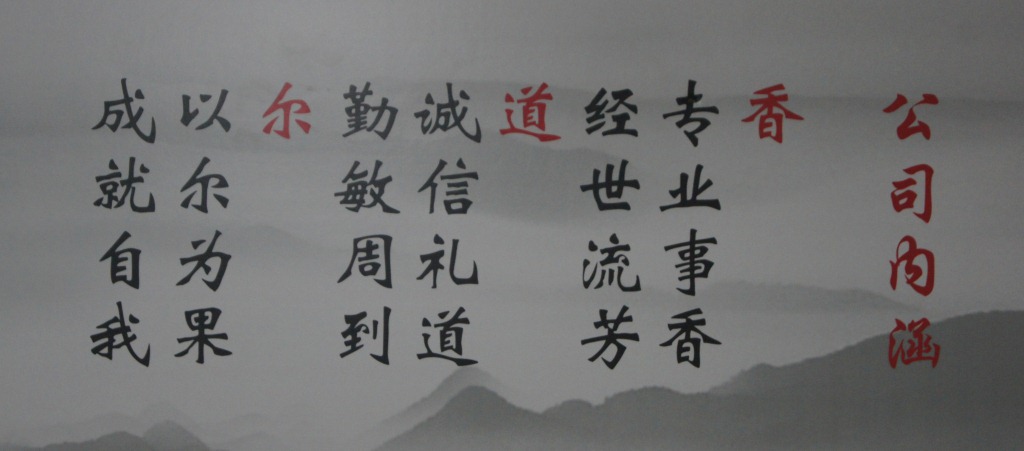 公司内涵
香
专业事香
经世流芳
道
诚信礼道
勤敏周到
尔
以尔为果
成就自我